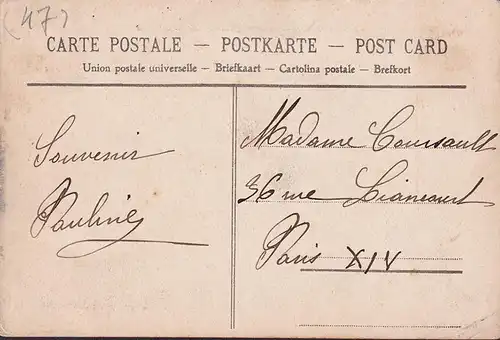 (47)
CARTE POSTALE — POSTKARTE — POST CARD
Union postale universelle — Briefkaart — Cartolina postale — Brefkort
Souvenir
Pauline
Madame Coursault
36 rue Liancourt
Paris XIV